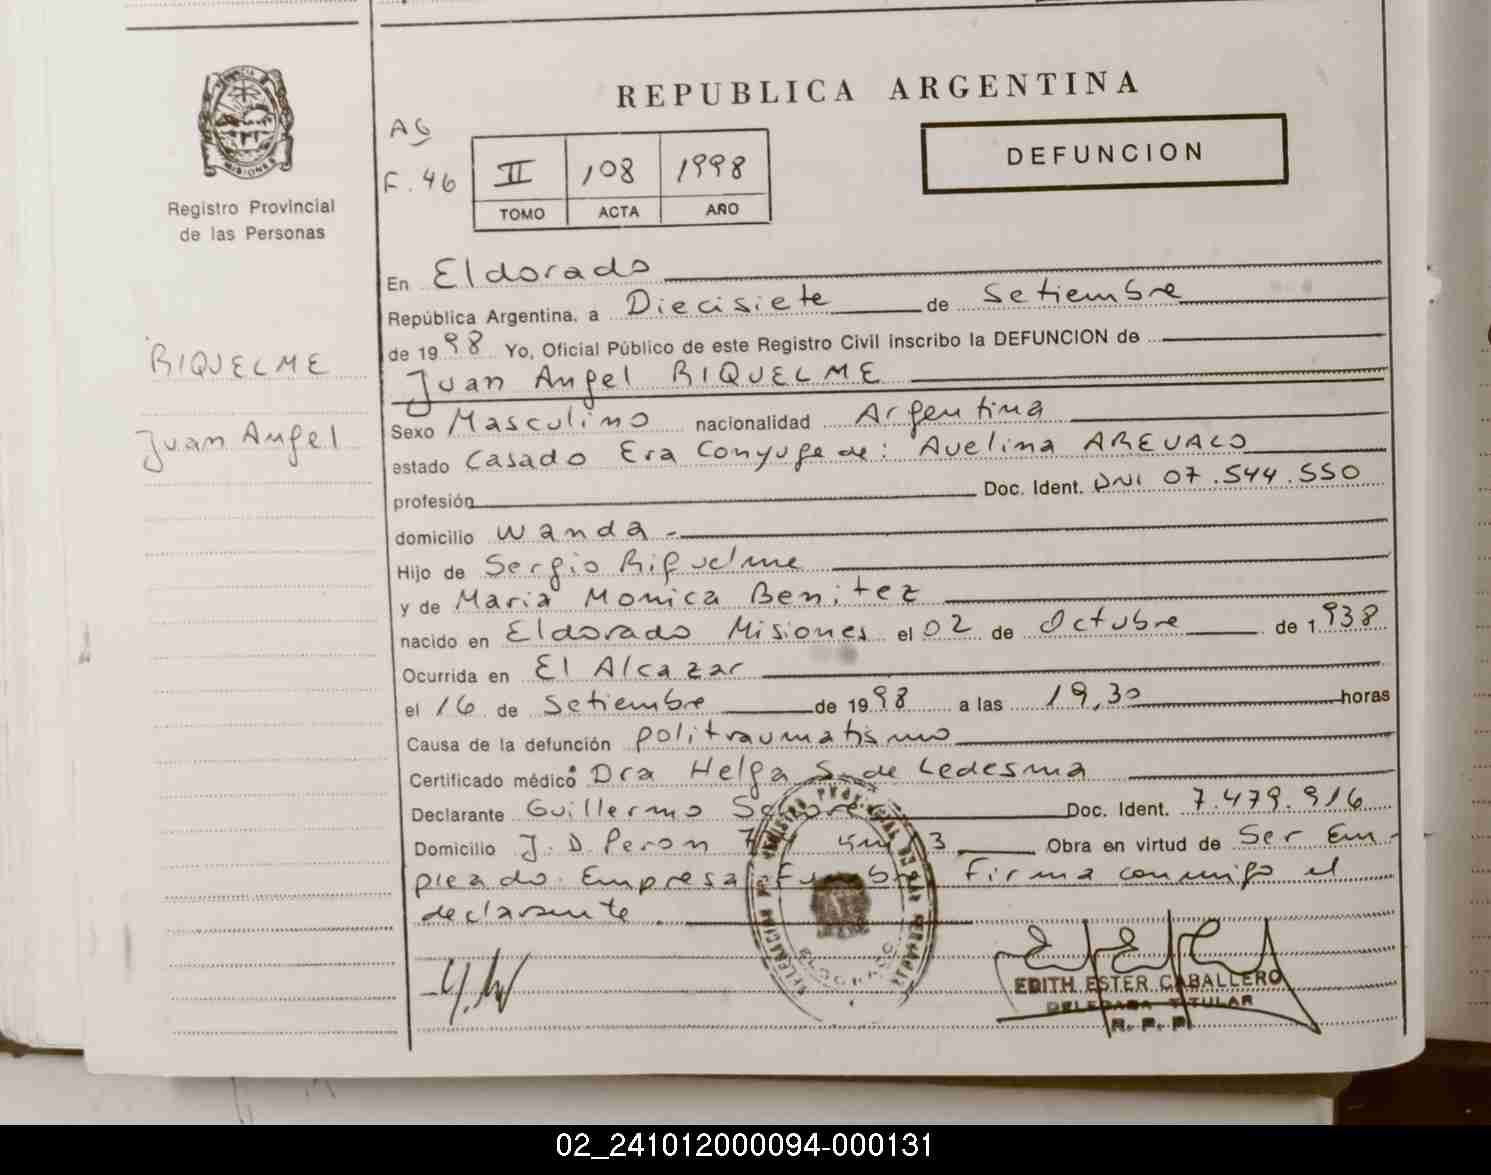 REPUBLICA ARGENTINA
MISIONES
Registro Provincial
de las Personas
AG
F. 46
II 108 1998
TOMO ACTA AÑO
DEFUNCION
RIQUELME
Juan Angel
En Eldorado
República Argentina, a Diecisiete de Setiembre
de 1998 Yo, Oficial Público de este Registro Civil inscribo la DEFUNCION de
Juan Angel RIQUELME
Sexo Masculino nacionalidad Argentina
estado Casado Era Conyuge de: Avelina AREVALO
profesión Doc. Ident. DNI 07.544.550
domicilio Wanda -
Hijo de Sergio Riquelme
y de Maria Monica Benitez
nacido en Eldorado Misiones el 02 de Octubre de 1.938
Ocurrida en El Alcazar
el 16 de Setiembre de 1998 a las 19,30 horas
Causa de la defunción politraumatismo
Certificado médico Dra Helga S. de Ledesma
Declarante Guillermo Doc. Ident. 7.479.916
Domicilio J. D. Peron Obra en virtud de Ser Em-
pleado Empresa Firma conmigo el
declarante.
ELDORADO
EDITH ESTER CABALLERO
DELEGADA TITULAR
R. P. P.
02_241012000094-000131